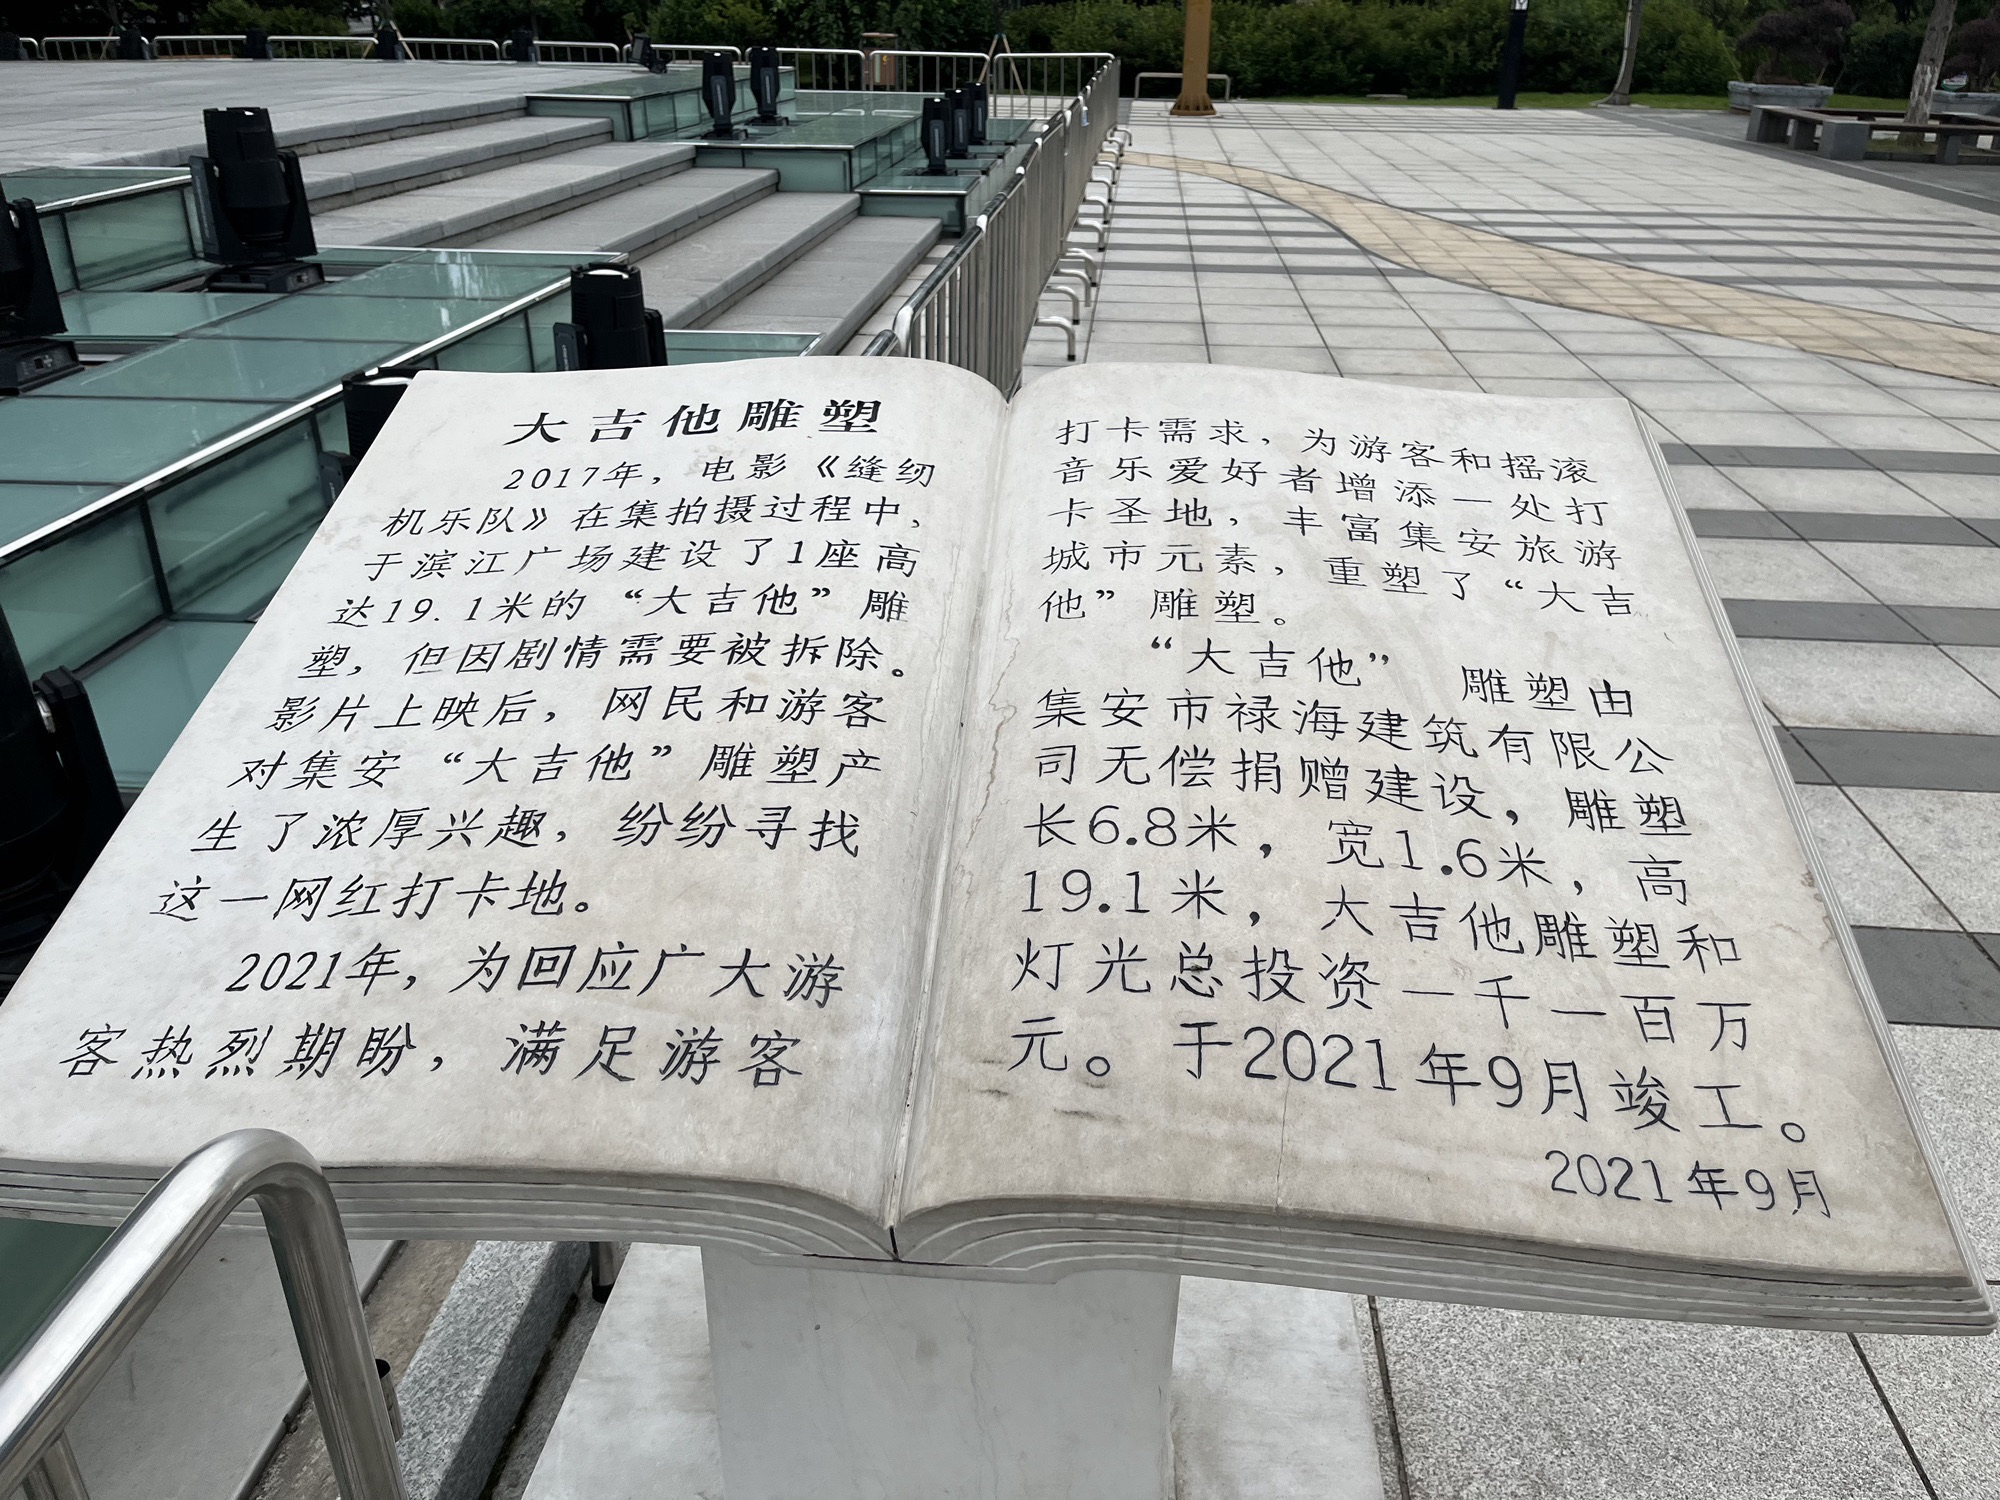 大吉他雕塑
2017年，电影《缝纫
机乐队》在集拍摄过程中，
于滨江广场建设了1座高
达19.1米的“大吉他”雕
塑，但因剧情需要被拆除。
影片上映后，网民和游客
对集安“大吉他”雕塑产
生了浓厚兴趣，纷纷寻找
这一网红打卡地。
2021年，为回应广大游
客热烈期盼，满足游客
打卡需求，为游客和摇滚
音乐爱好者增添一处打
卡圣地，丰富集安旅游
城市元素，重塑了“大吉
他”雕塑。
“大吉他” 雕塑由
集安市禄海建筑有限公
司无偿捐赠建设，雕塑
长6.8米，宽1.6米，高
19.1米，大吉他雕塑和
灯光总投资一千一百万
元。于2021年9月竣工。
2021年9月